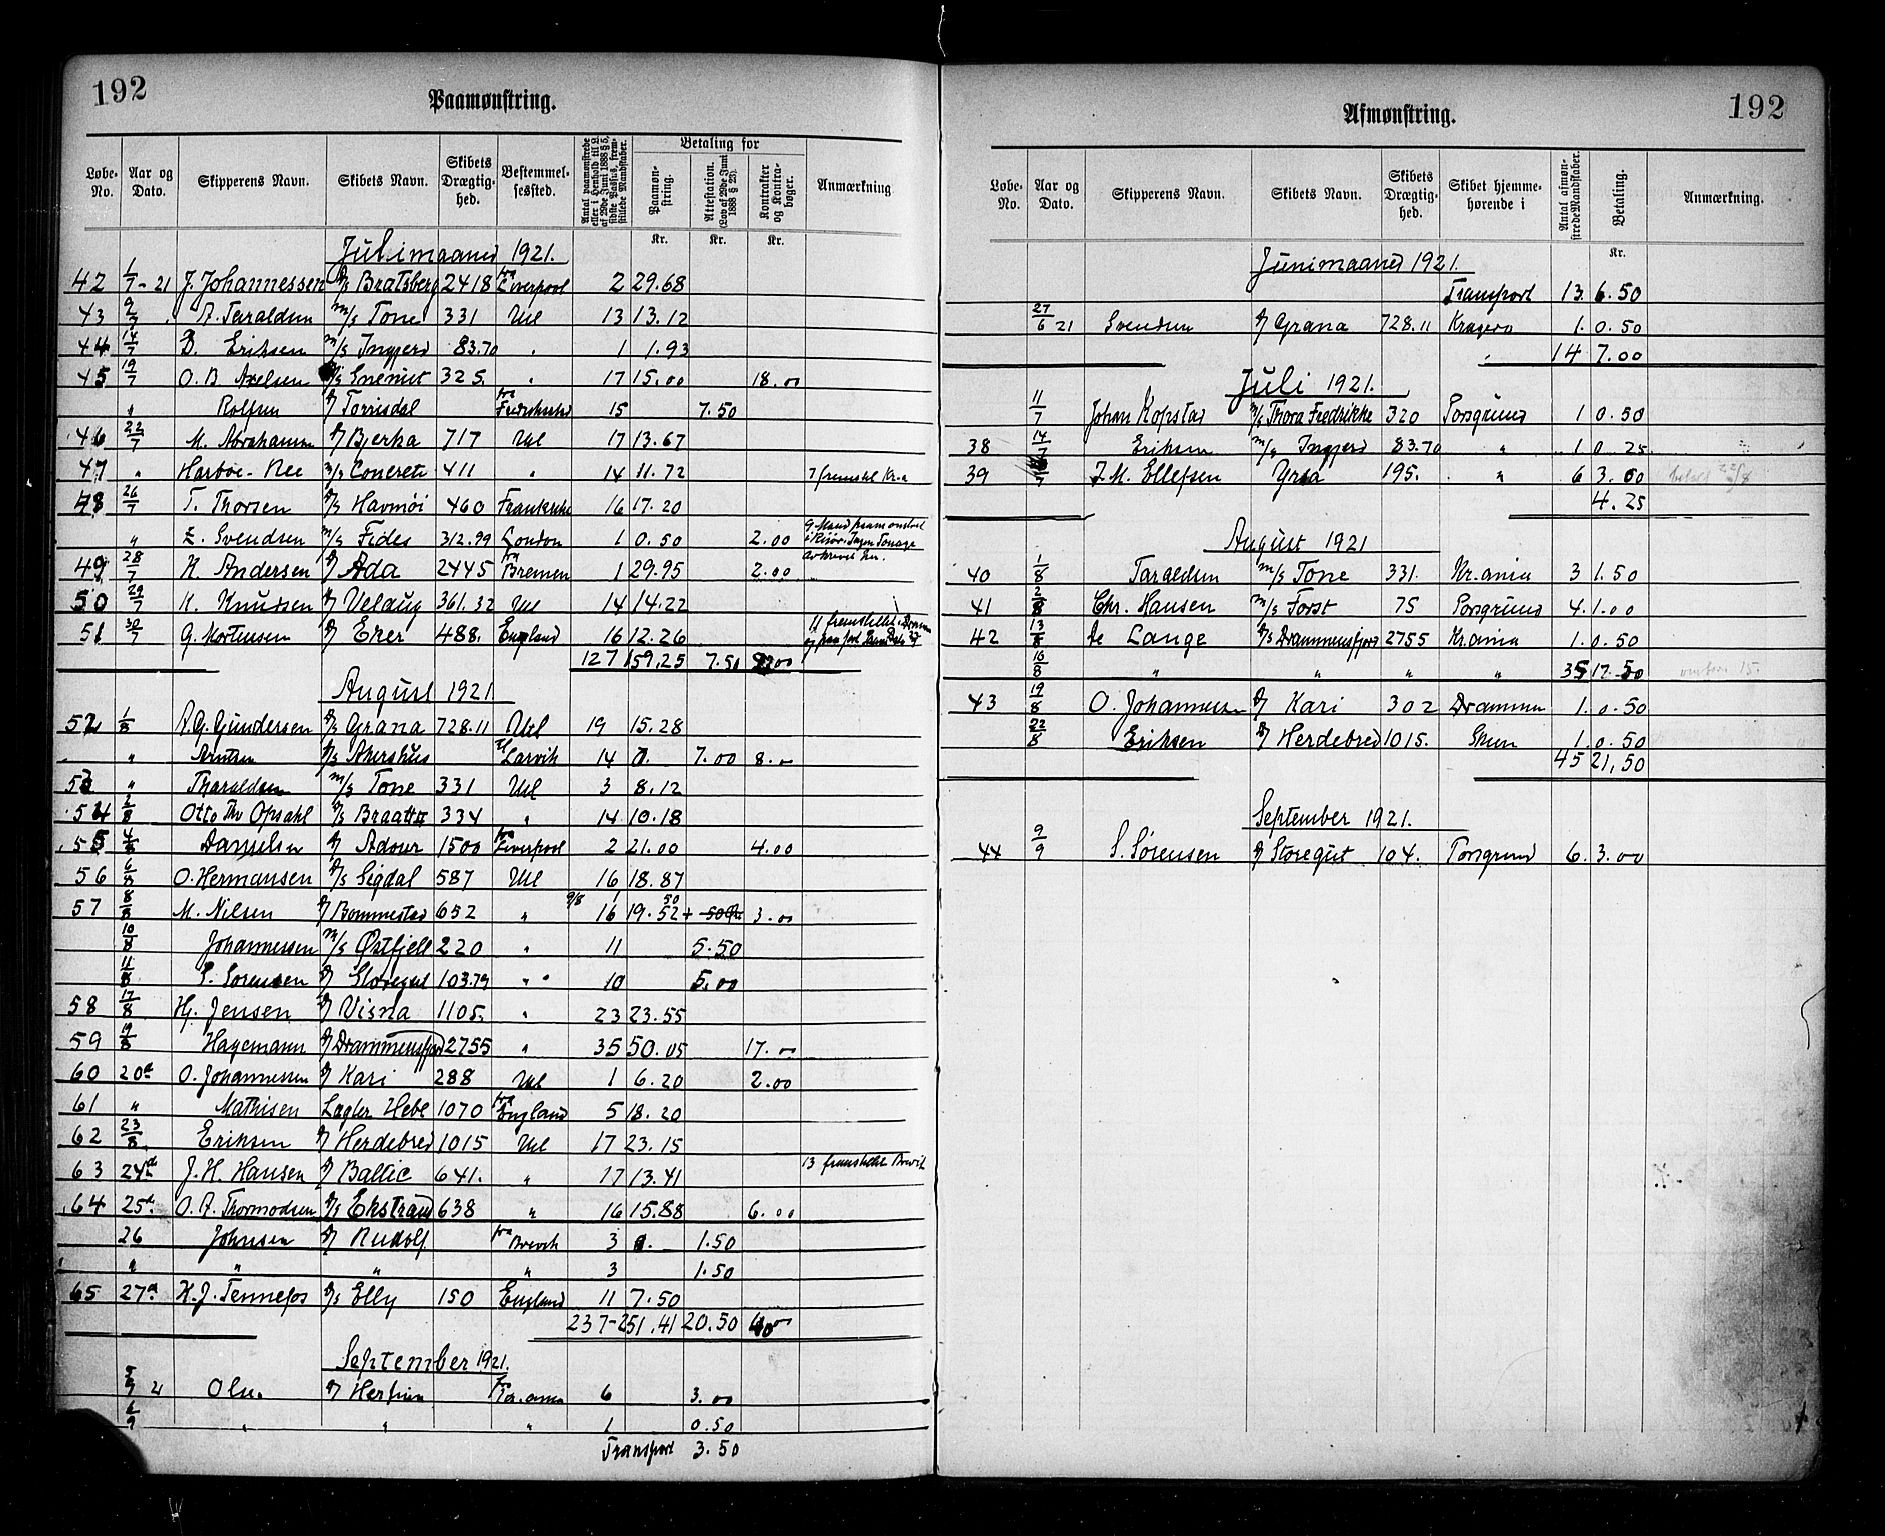 192
Paamønstring.
Løbe-No. Aar og Dato. Skipperens Navn. Skibets Navn. Skibets Drægtighed. Bestemmelsessted. Antal paamønstrede eller i Henhold til L. af 29de Juni 1888 § 5, sidste Passus, fremstillede Mandskaber. Betaling for Paamønstring. Attestation. (Lov af 29de Juni 1888 § 23). Kontrakter og Kontrabøger. Anmærkning
Kr. Kr. Kr.
Julimaaned 1921.
42 1/7-21 J. Johannessen D/S Bratsberg 2418 fra Liverpool 2 29.68
43 9/7 A. Taraldsen m/s Tone 331 Utl 13 13.12
44 14/7 D. Eriksen m/s Ingjerd 83.70 " 1 1.93
45 19/7 O. B. Axelsen 325. " 17 15.00 18.00
" Rolfsen Torrisdal fra 15 7.50
46 22/7 M. Abrahamsen Bjerka 717 Utl 17 13.67
47 " Harboe-Ree m/s Concrete 411 " 14 11.72 7 fremstil Kr.a
48 26/7 T. Thorsen D/S Havmøi 460 Frankrike 16 17.20
" E. Svendsen m/s Fides 312.99 London 1 0.50 2.00 9 Mand paamønstret i Risør. Ingen Tonage
49 28/7 K. Andersen Ada 2445 fra Bremen 1 29.95 2.00
50 29/7 K. Knudsen Velaug 361.32 Utl 14 14.22
51 30/7 G. Mortensen Eker 488. England 16 12.26 11 fremstillet i Dramm
127 159,25 7.50 00
August 1921
52 1/8 A. G. Gundersen D/S Grana 728.11 Utl 19 15.28
" Arntsen D/S Akershus til Larvik 14 7.00 8.00
53 " Tharaldsen m/s Tone 331 Utl 3 8.12
54 2/8 Otto Thv Opsahl D/S 334 " 14 10.18
55 4/8 Danielsen Adour 1500 fra Liverpool 2 21.00 4.00
56 6/8 O. Hermansen D/S Sigdal 587 Utl 16 18.87
57 8/8 M. Nilsen Bommestad 652 " 9/8 1 16 19.52 + 50 3.00
10/8 Johannessen m/s Østfjell 220 " 11 5.50
11/8 S. Sørensen Storegut 103.79 " " 10 5.00
58 17/8 Hj. Jensen Visna 1105. " 23 23.55
59 19/8 Hagemann Drammensfjord 2755 " 35 50.05 17.00
60 20de O. Johannessen Kari 288 Utl 1 6.20 2.00
61 " Mathisen Lægter Hebe 1070 fra England 5 18.20
62 23/8 Eriksen Herdebred 1015 Utl 17 23.15
63 24de J. H. Hansen Baltic 641. " 17 13.41 13 fremstillet Brevik
64 25de O. A. Thormodsen D/S Ekstrand 638 " 16 15.88 6.00
26 Johnsen Rudolf fra Brevik 3 1.50
" " " " 3 1.50
65 27de K. J. Tennefos D/S Elly 150 England 11 7.50
237-251,41 20.50 40 00
September 1921.
5/9 21 Olsen fra Kr.ania 6 3.00
6/9 " " " 1 0.50
Transport 3.50
192
Afmønstring.
Løbe-No. Aar og Dato. Skipperens Navn. Skibets Navn. Skibets Drægtighed. Skibet hjemmehørende i Antal afmønstrede Mandskaber. Betaling. Anmærkning.
Kr.
Junimaaned 1921.
Transport 13. 6.50
27/6 21 Svendsen Grana 728.11 Kragerø 1. 0.50
14 7.00
Juli 1921.
11/7 Johan Kopstad m/s Thora Fredrikke 320 Porsgrund 1 0.50
38 14/7 Eriksen m/s Ingjerd 83.70 " 1 0 25
39 J. M. Ellefsen Yrsa 195. " 6 3.00 betalt 22/8
4.25
August 1921
40 1/8 Taraldsen m/s Tone 331. Kr.ania 3 1.50
41 2/8 Chr. Hansen m/s Forst 75 Porsgrund 4. 1.00
42 13/8 de Lange D/S Drammensfjord 2755 Kr.ania 1. 0.50
16/8 " " " " 35 17.50
43 19/8 O. Johannessen Kari 302 Drammen 1. 0.50
22/8 Eriksen Herdebred 1015. Skien 1. 0.50
45 21,50
September 1921.
44 9/9 S. Sørensen Storegut 104. Porsgrund 6. 3.00